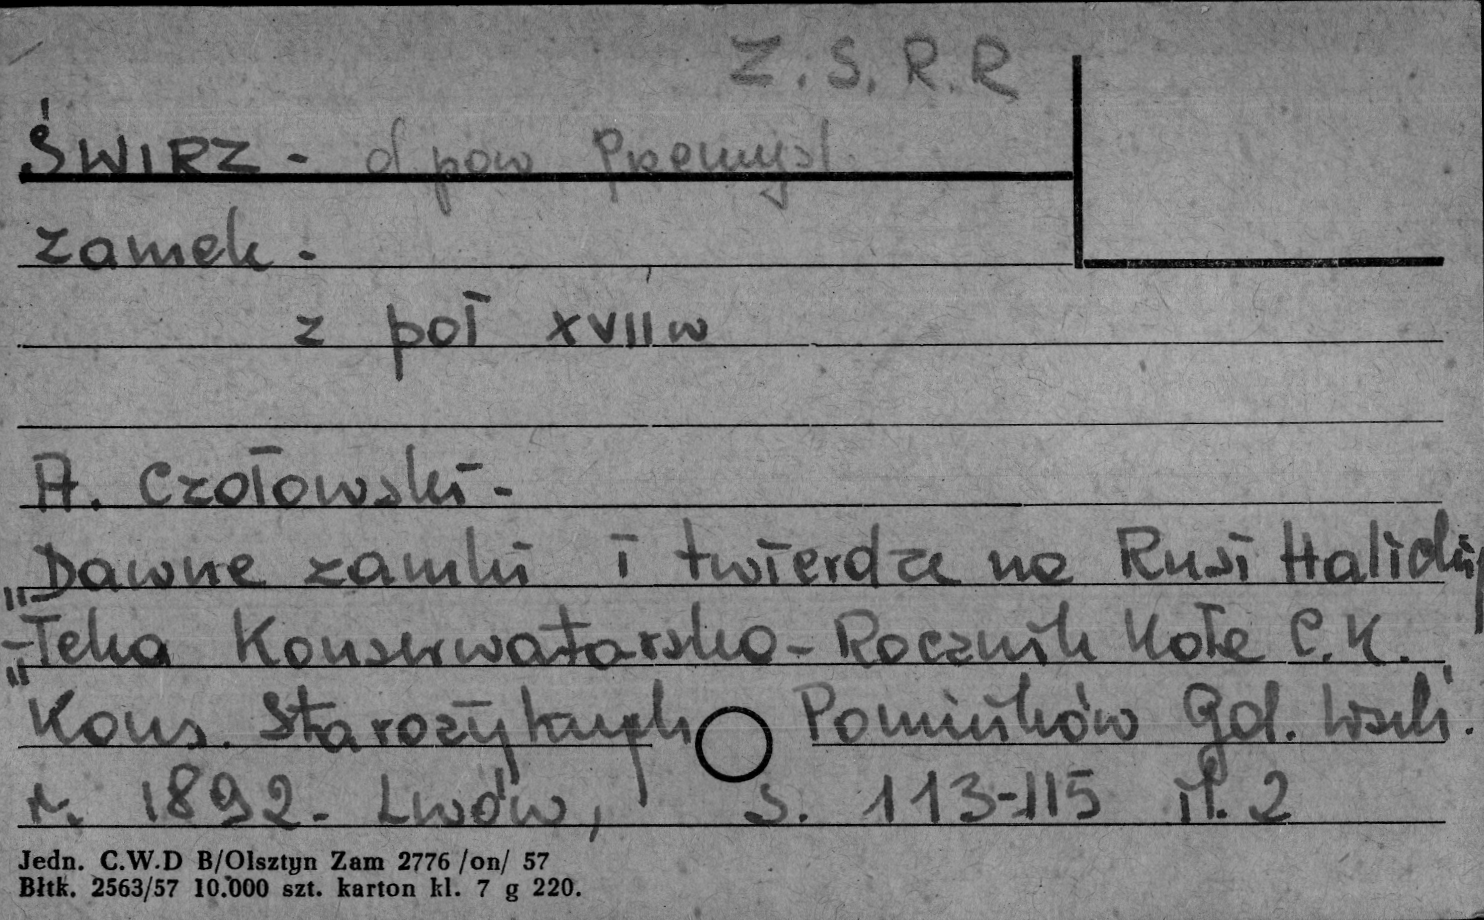 Z.S.R.R
ŚWIRZ - d pow Przemyśl
zamek -
z poł XVII w
A. Czołowski -
"Dawne zamki i twierdze na Rusi Halickiej
- Teka Konserwatorska - Rocznik Koła C.K.
"Kons. Starożytnych Pomników Gal. Wsch.
r. 1892 - Lwów, s. 113-115 il. 2
Jedn. C.W.D B/Olsztyn Zam 2776 /on/ 57
Błtk. 2563/57 10.000 szt. karton kl. 7 g 220.